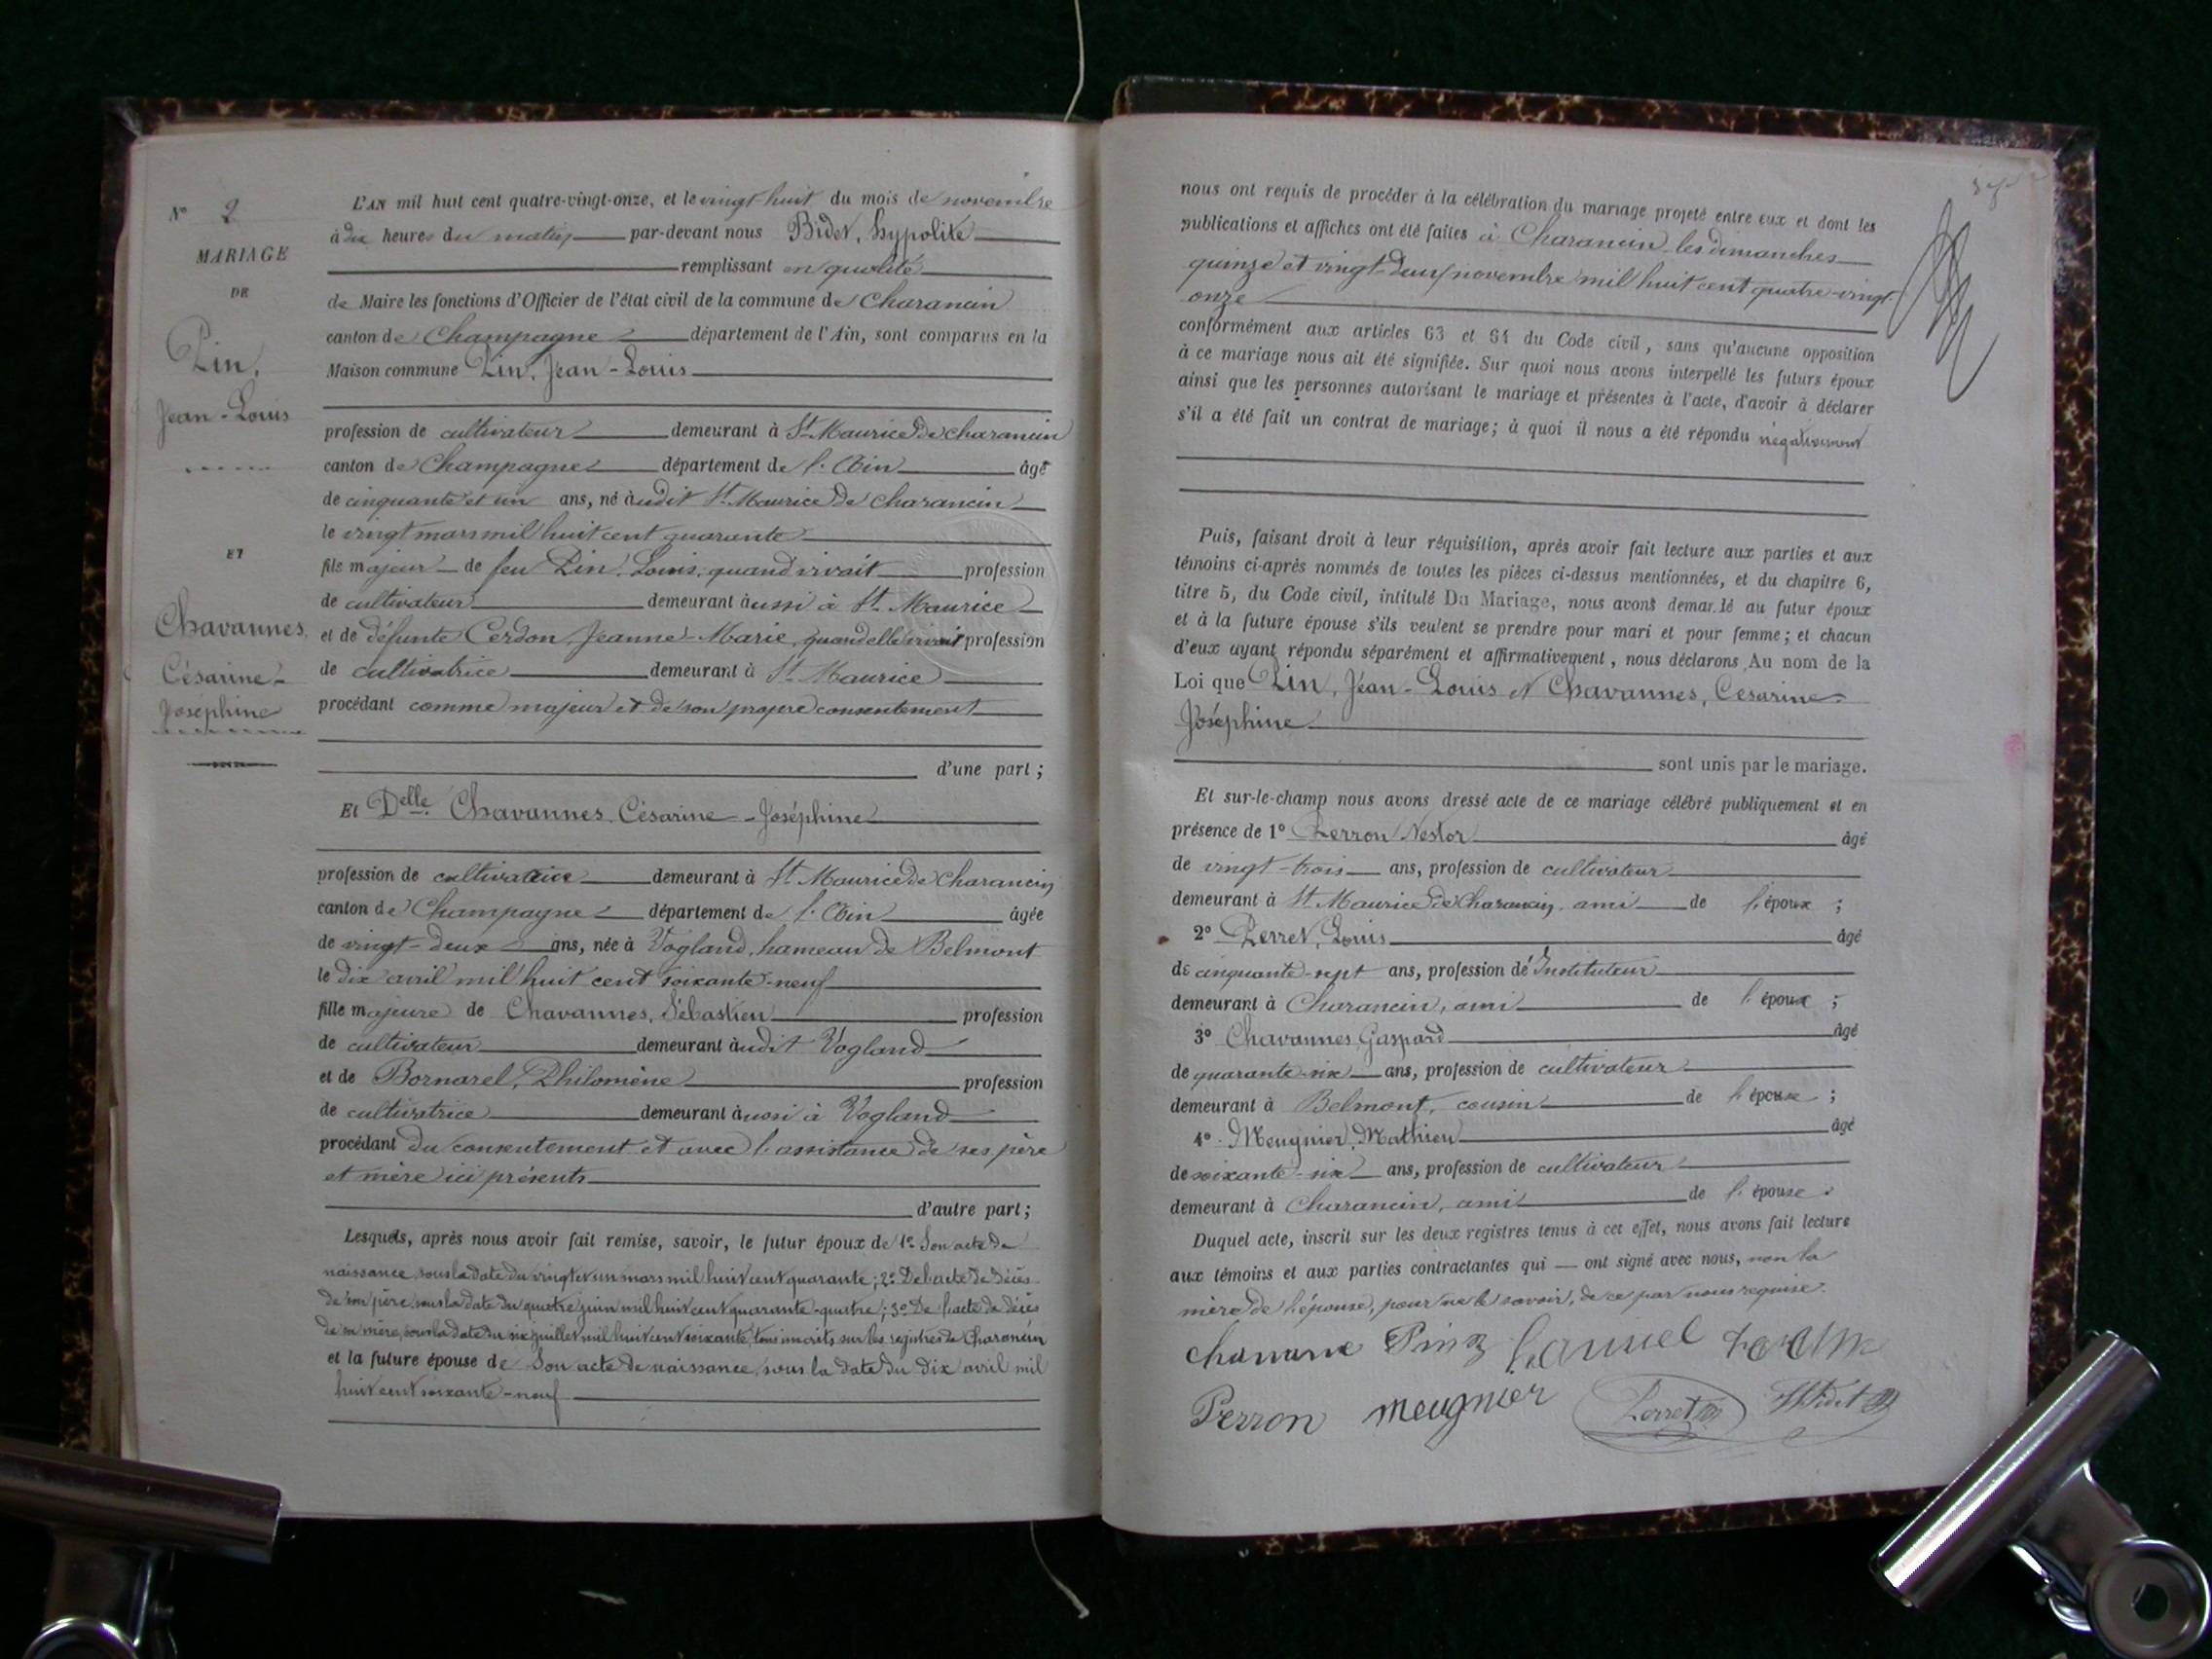 N° 2
MARIAGE
DE
Pin,
Jean-Louis
ET
Chavannes
Césarine-
Joséphine
L'AN mil huit cent quatre-vingt-onze, et le vingt huit du mois de novembre
à dix heures du matin par-devant nous Bidet, Hypolite
remplissant en qualité
de Maire les fonctions d'Officier de l'état civil de la commune de Charancin
canton de Champagne département de l'Ain, sont comparus en la
Maison commune Pin, Jean-Louis
profession de cultivateur demeurant à St Maurice de charancin
canton de Champagne département de l'Ain âgé
de cinquante et un ans, né àudit St Maurice de charancin
le vingt mars mil huit cent quarante
fils majeur de feu Pin, Louis, quand vivait profession
de cultivateur demeurant àussi à St. Maurice
et de défunte Cerdon, Jeanne-Marie, quand elle vivait profession
de cultivatrice demeurant à St Maurice
procédant comme majeur et de son propre consentement
d'une part ;
Et Delle Chavannes Césarine-Joséphine
profession de cultivatrice demeurant à St Maurice de Charancin
canton de Champagne département de l'Ain âgée
de vingt-deux ans, née à Vogland, hameau de Belmont
le dix avril mil huit cent soixante-neuf
fille majeure de Chavannes, Sébastien profession
de cultivateur demeurant àudit Vogland
et de Bornarel, Philomène profession
de cultivatrice demeurant àussi à Vogland
procédant du consentement et avec l'assistance de ses père
et mère ici présents
d'autre part ;
Lesquels, après nous avoir fait remise, savoir, le futur époux de 1° Son acte de
naissance sous la date du vingt et un mars mil huit cent quarante ; 2° De l'acte de décès
de son père, sous la date du quatre juin mil huit cent quarante-quatre ; 3° De l'acte de décès
de sa mère, sous la date du six juillet mil huit cent soixante, tous inscrits sur les registres de Charancin
et la future épouse de Son acte de naissance, sous la date du dix avril mil
huit cent soixante-neuf
nous ont requis de procéder à la célébration du mariage projeté entre eux et dont les
publications et affiches ont été faites à Charancin les dimanches
quinze et vingt-deux novembre mil huit cent quatre-vingt
onze
conformément aux articles 63 et 64 du Code civil, sans qu'aucune opposition
à ce mariage nous ait été signifiée. Sur quoi nous avons interpellé les futurs époux
ainsi que les personnes autorisant le mariage et présentes à l'acte, d'avoir à déclarer
s'il a été fait un contrat de mariage; à quoi il nous a été répondu négativement
Puis, faisant droit à leur réquisition, après avoir fait lecture aux parties et aux
témoins ci-après nommés de toutes les pièces ci-dessus mentionnées, et du chapitre 6,
titre 5, du Code civil, intitulé Du Mariage, nous avons demandé au futur époux
et à la future épouse s'ils veulent se prendre pour mari et pour femme ; et chacun
d'eux ayant répondu séparément et affirmativement, nous déclarons Au nom de la
Loi que Pin, Jean-Louis et Chavannes, Césarine-
Joséphine
sont unis par le mariage.
Et sur-le-champ nous avons dressé acte de ce mariage célébré publiquement et en
présence de 1° Perron Nestor âgé
de vingt-trois ans, profession de cultivateur
demeurant à St Maurice de Charancin, ami de l'époux ;
2° Perret, Louis âgé
de cinquante-sept ans, profession de Instituteur
demeurant à Charancin, ami de l'époux ;
3° Chavannes Gaspard âgé
de quarante-six ans, profession de cultivateur
demeurant à Belmont, cousin de l'épouse ;
4° Meugnier, Mathieu âgé
de soixante-six ans, profession de cultivateur
demeurant à Charancin, ami de l'épouse.
Duquel acte, inscrit sur les deux registres tenus à cet effet, nous avons fait lecture
aux témoins et aux parties contractantes qui — ont signé avec nous, non la
mère de l'épouse, pour ne le savoir, de ce par nous requise.
chavane Pin
Perron meugnier Perret HBidet